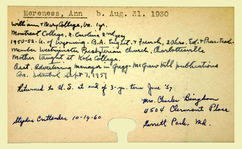 Mereness, Ann b. Aug. 21, 1930
William & Mary College, Va. 1 yr.
Montreat College, N. Carolina 2nd yr
1950-52 - U. of Wyoming - B.A. Eng. Lit. & French, 20 hrs. Ed. & Prac. Teach.
member Westminster Presbyterian Church, Charlottesville
Mother taught at Kobe College.
Asst. Advertising manager in Gregg - McGraw Hill publications
Co. Started Sept 7, 1951
Returned to U.S. at end of 3-yr. term June '57
Mrs. Charles Bingham
4504 Clermont Place
Garrett Park, Md.
10-19-60